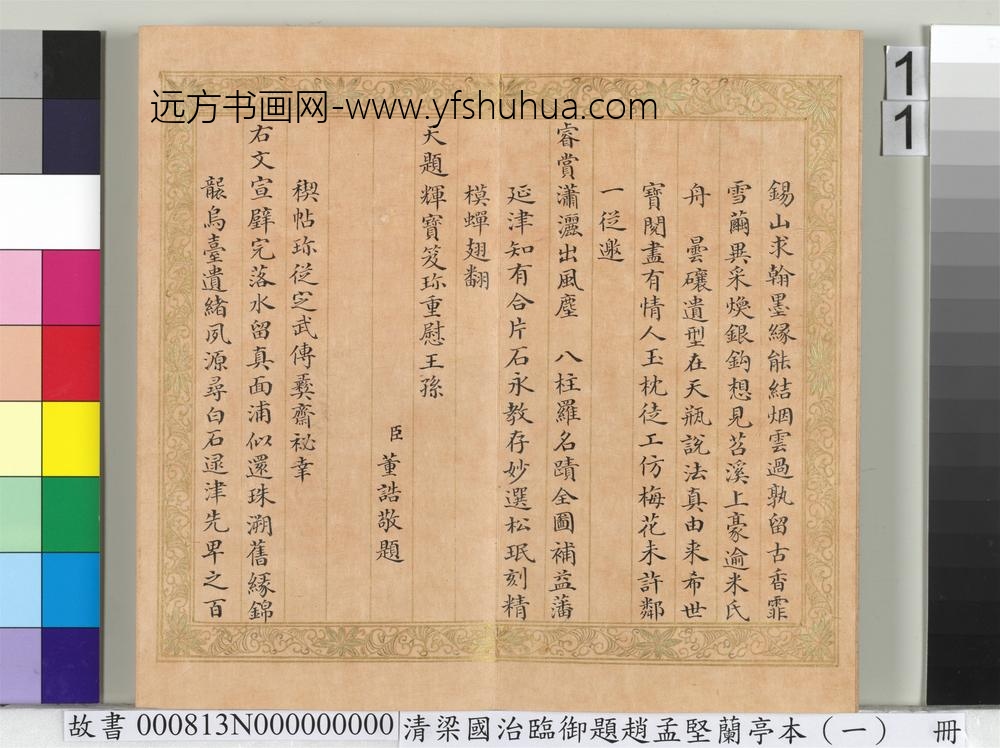 远方书画网-www.yfshuhua.com
1
1
錫山求翰墨緣能結烟雲過孰留古香霏
雪繭異采煥銀鈎想見苕溪上豪逾米氏
舟　曇礦遺型在天瓶說法真由来希世
寶閱盡有情人玉枕徒工仿梅花未許鄰
一従邀
睿賞瀟灑出風塵　八柱羅名蹟全圖補益藩
延津知有合片石永教存妙選松珉刻精
模蟬翅翻
天題輝寶笈珎重慰王孫
臣董誥敬題
禊帖珎従定武傳彝齋祕幸
右文宣壁完落水留真面浦似還珠溯舊緣錦
龑烏臺遺緒夙源尋白石逯津先畀之百
故書 000813N000000000 清梁國治臨御題趙孟堅蘭亭本（一） 冊